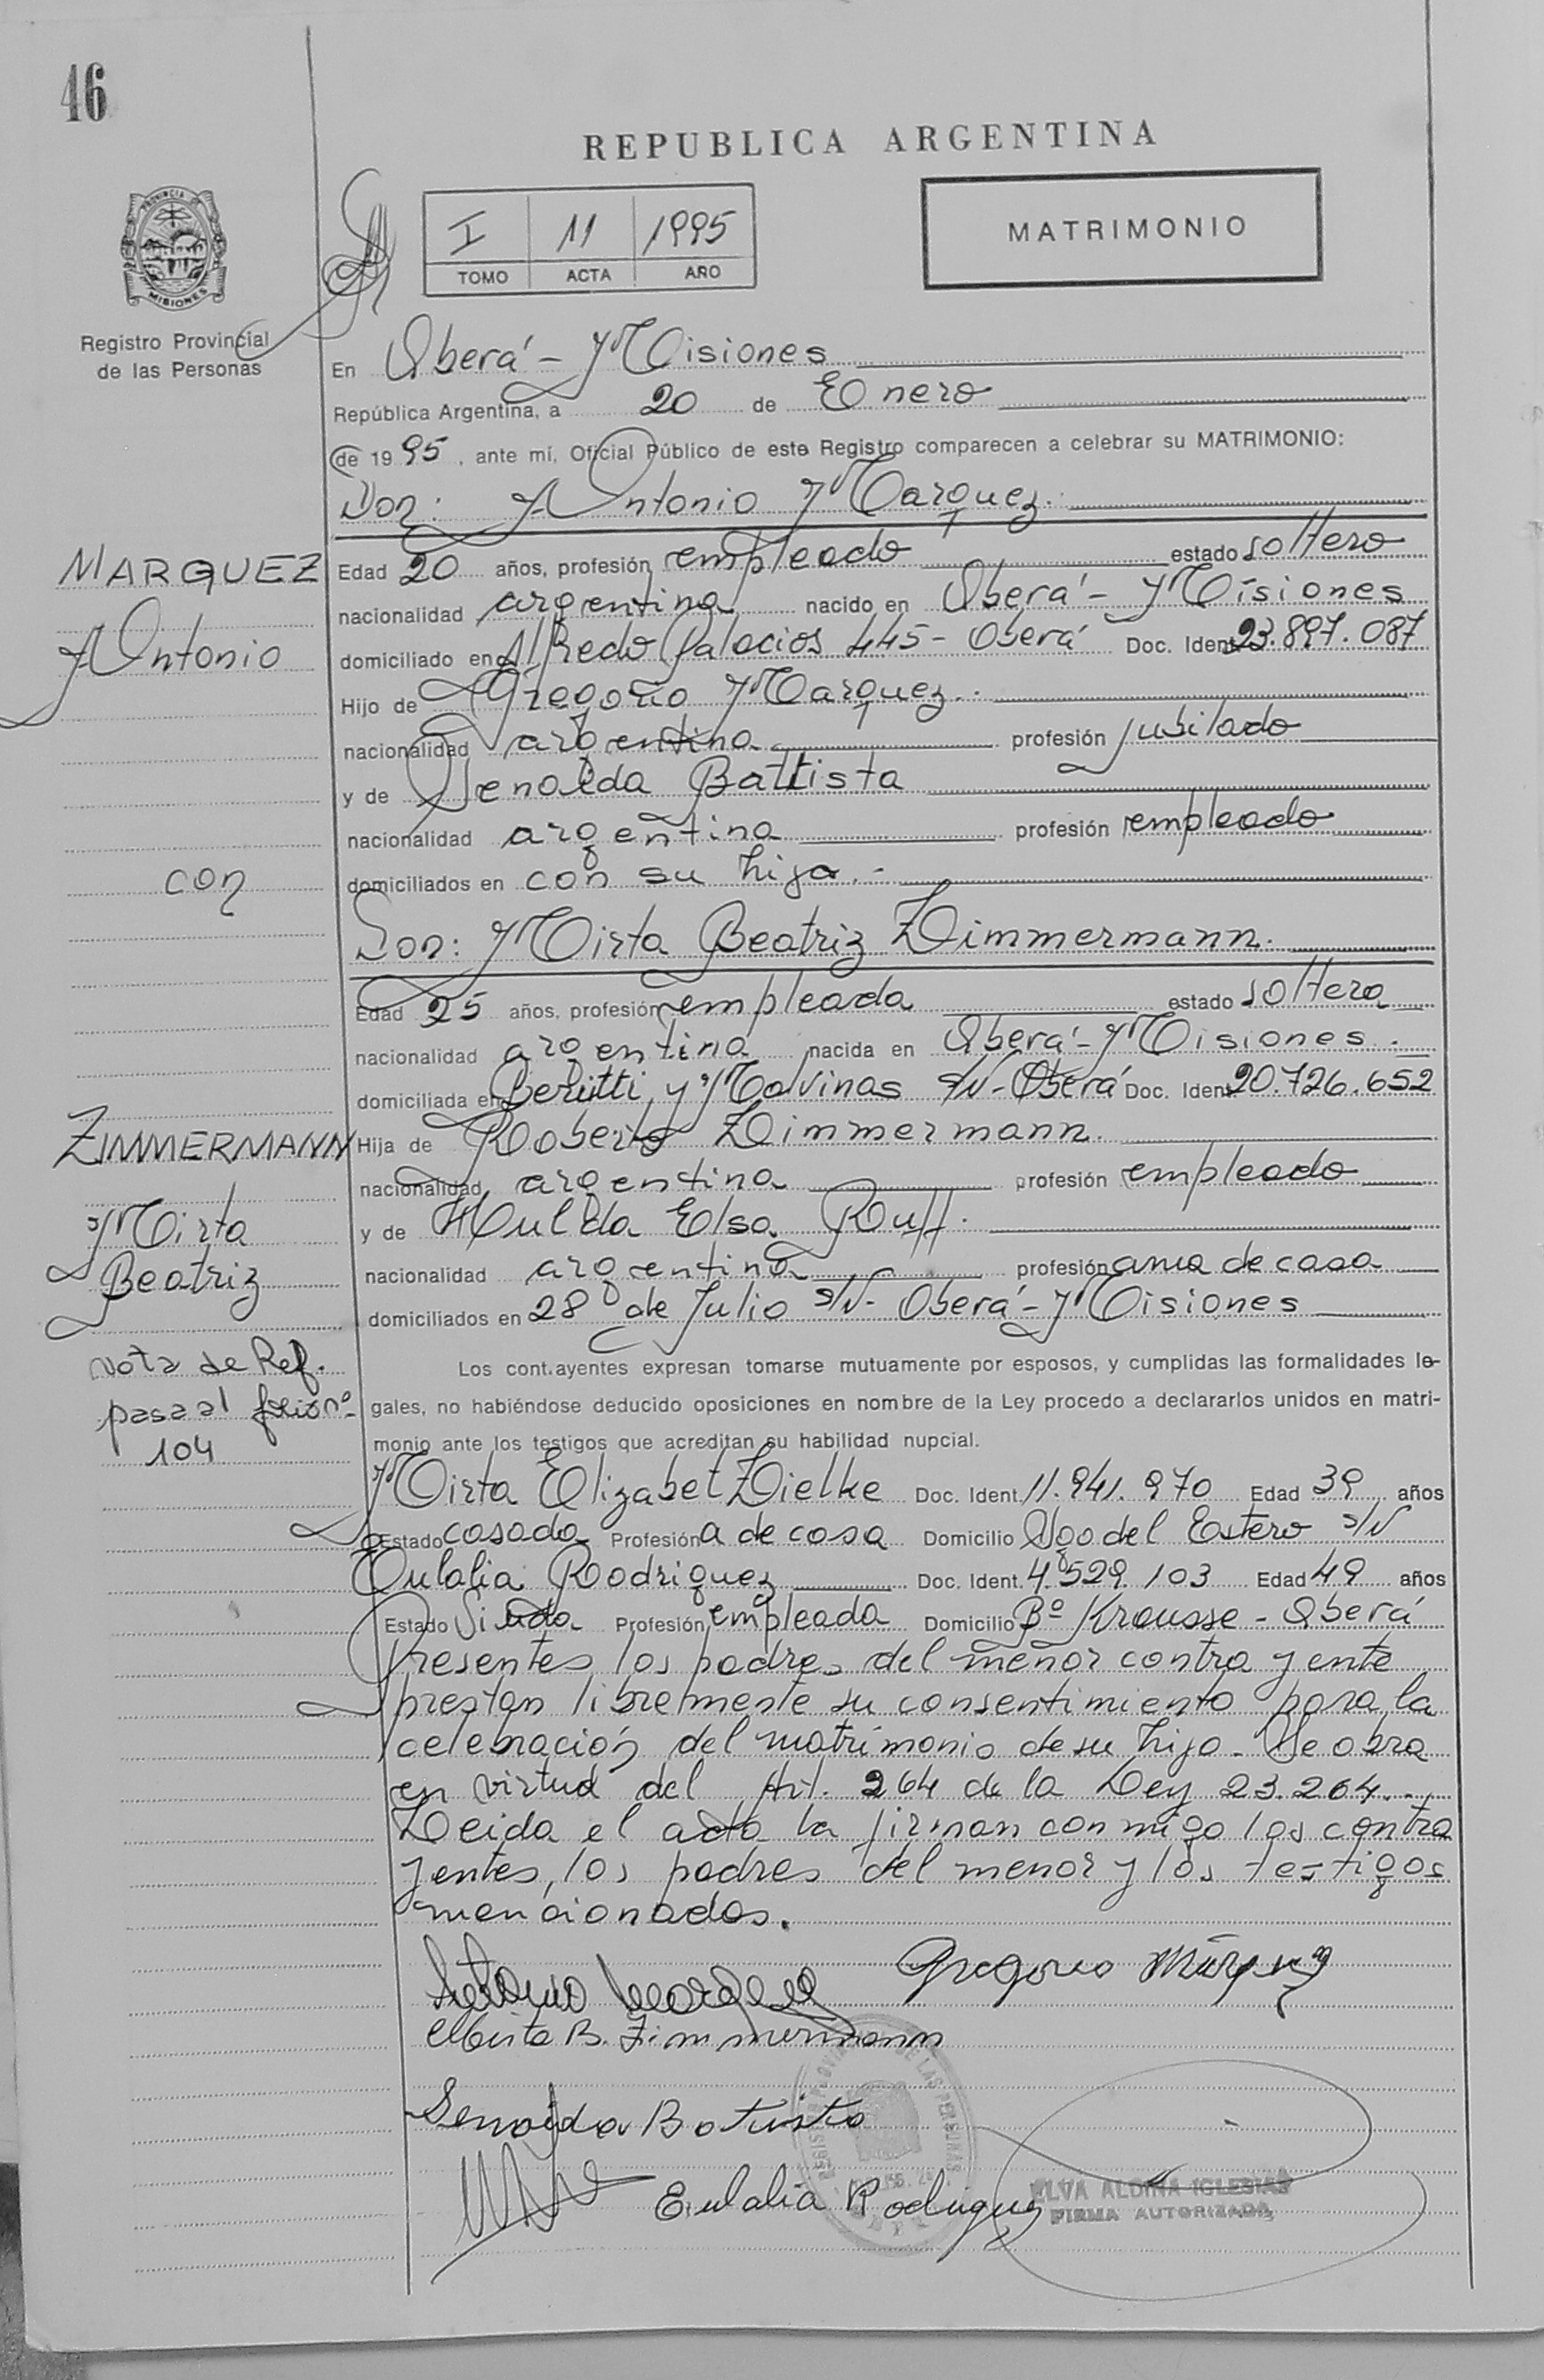 46
REPUBLICA ARGENTINA
PROVINCIA DE
MISIONES
I 11 1995
TOMO ACTA AÑO
MATRIMONIO
Registro Provincial
de las Personas
En Oberá - Misiones
República Argentina, a 20 de Enero
de 1995, ante mí, Oficial Público de este Registro comparecen a celebrar su MATRIMONIO:
Don: Antonio Marquez.
MARQUEZ
Antonio
con
ZIMMERMANN
Mirta
Beatriz
Nota de Ref.
pasa al folio nº
104
Edad 20 años, profesión empleado estado soltero
nacionalidad argentina nacido en Oberá - Misiones
domiciliado en Alfredo Palacios 445 - Oberá Doc. Ident. 23.897.087
Hijo de Gregorio Marquez.
nacionalidad argentina profesión jubilado
y de Senaida Battista
nacionalidad argentina profesión empleado
domiciliados en con su hijo.-
Don: Mirta Beatriz Zimmermann.
Edad 25 años, profesión empleada estado soltera
nacionalidad argentina nacida en Oberá - Misiones.
domiciliada en Berutti y Malvinas S/N - Oberá Doc. Ident. 20.726.652
Hija de Roberto Zimmermann.
nacionalidad argentina profesión empleado
y de Hulda Elsa Ruff.
nacionalidad argentina profesión ama de casa
domiciliados en 28 de Julio S/N - Oberá - Misiones
Los cont.ayentes expresan tomarse mutuamente por esposos, y cumplidas las formalidades le-
gales, no habiéndose deducido oposiciones en nombre de la Ley procedo a declararlos unidos en matri-
monio ante los testigos que acreditan su habilidad nupcial.
Mirta Elizabet Zielke Doc. Ident. 11.941.970 Edad 39 años
Estado casada Profesión a de casa Domicilio Sgo del Estero S/N
Eulalia Rodriguez Doc. Ident. 4.529.103 Edad 49 años
Estado Viuda Profesión empleada Domicilio Bº Krausse - Oberá
Presentes los padres del menor contrayente
prestan libremente su consentimiento para la
celebración del matrimonio de su hijo. Se obra
en virtud del Art. 264 de la Ley 23.264.
Leida el acta la firman conmigo los contra
yentes, los padres del menor y los testigos
mencionados.
Antonio Marquez Gregorio Marquez
Mirta B. Zimmermann
Senaida Batista
Eulalia Rodriguez
ELVA ALDINA IGLESIAS
FIRMA AUTORIZADA